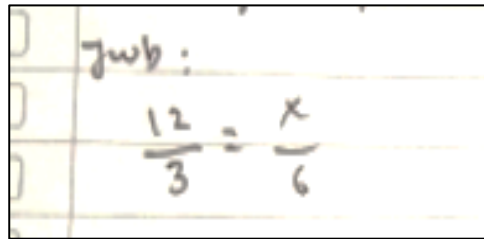 Jwb :
12/3 = x/6